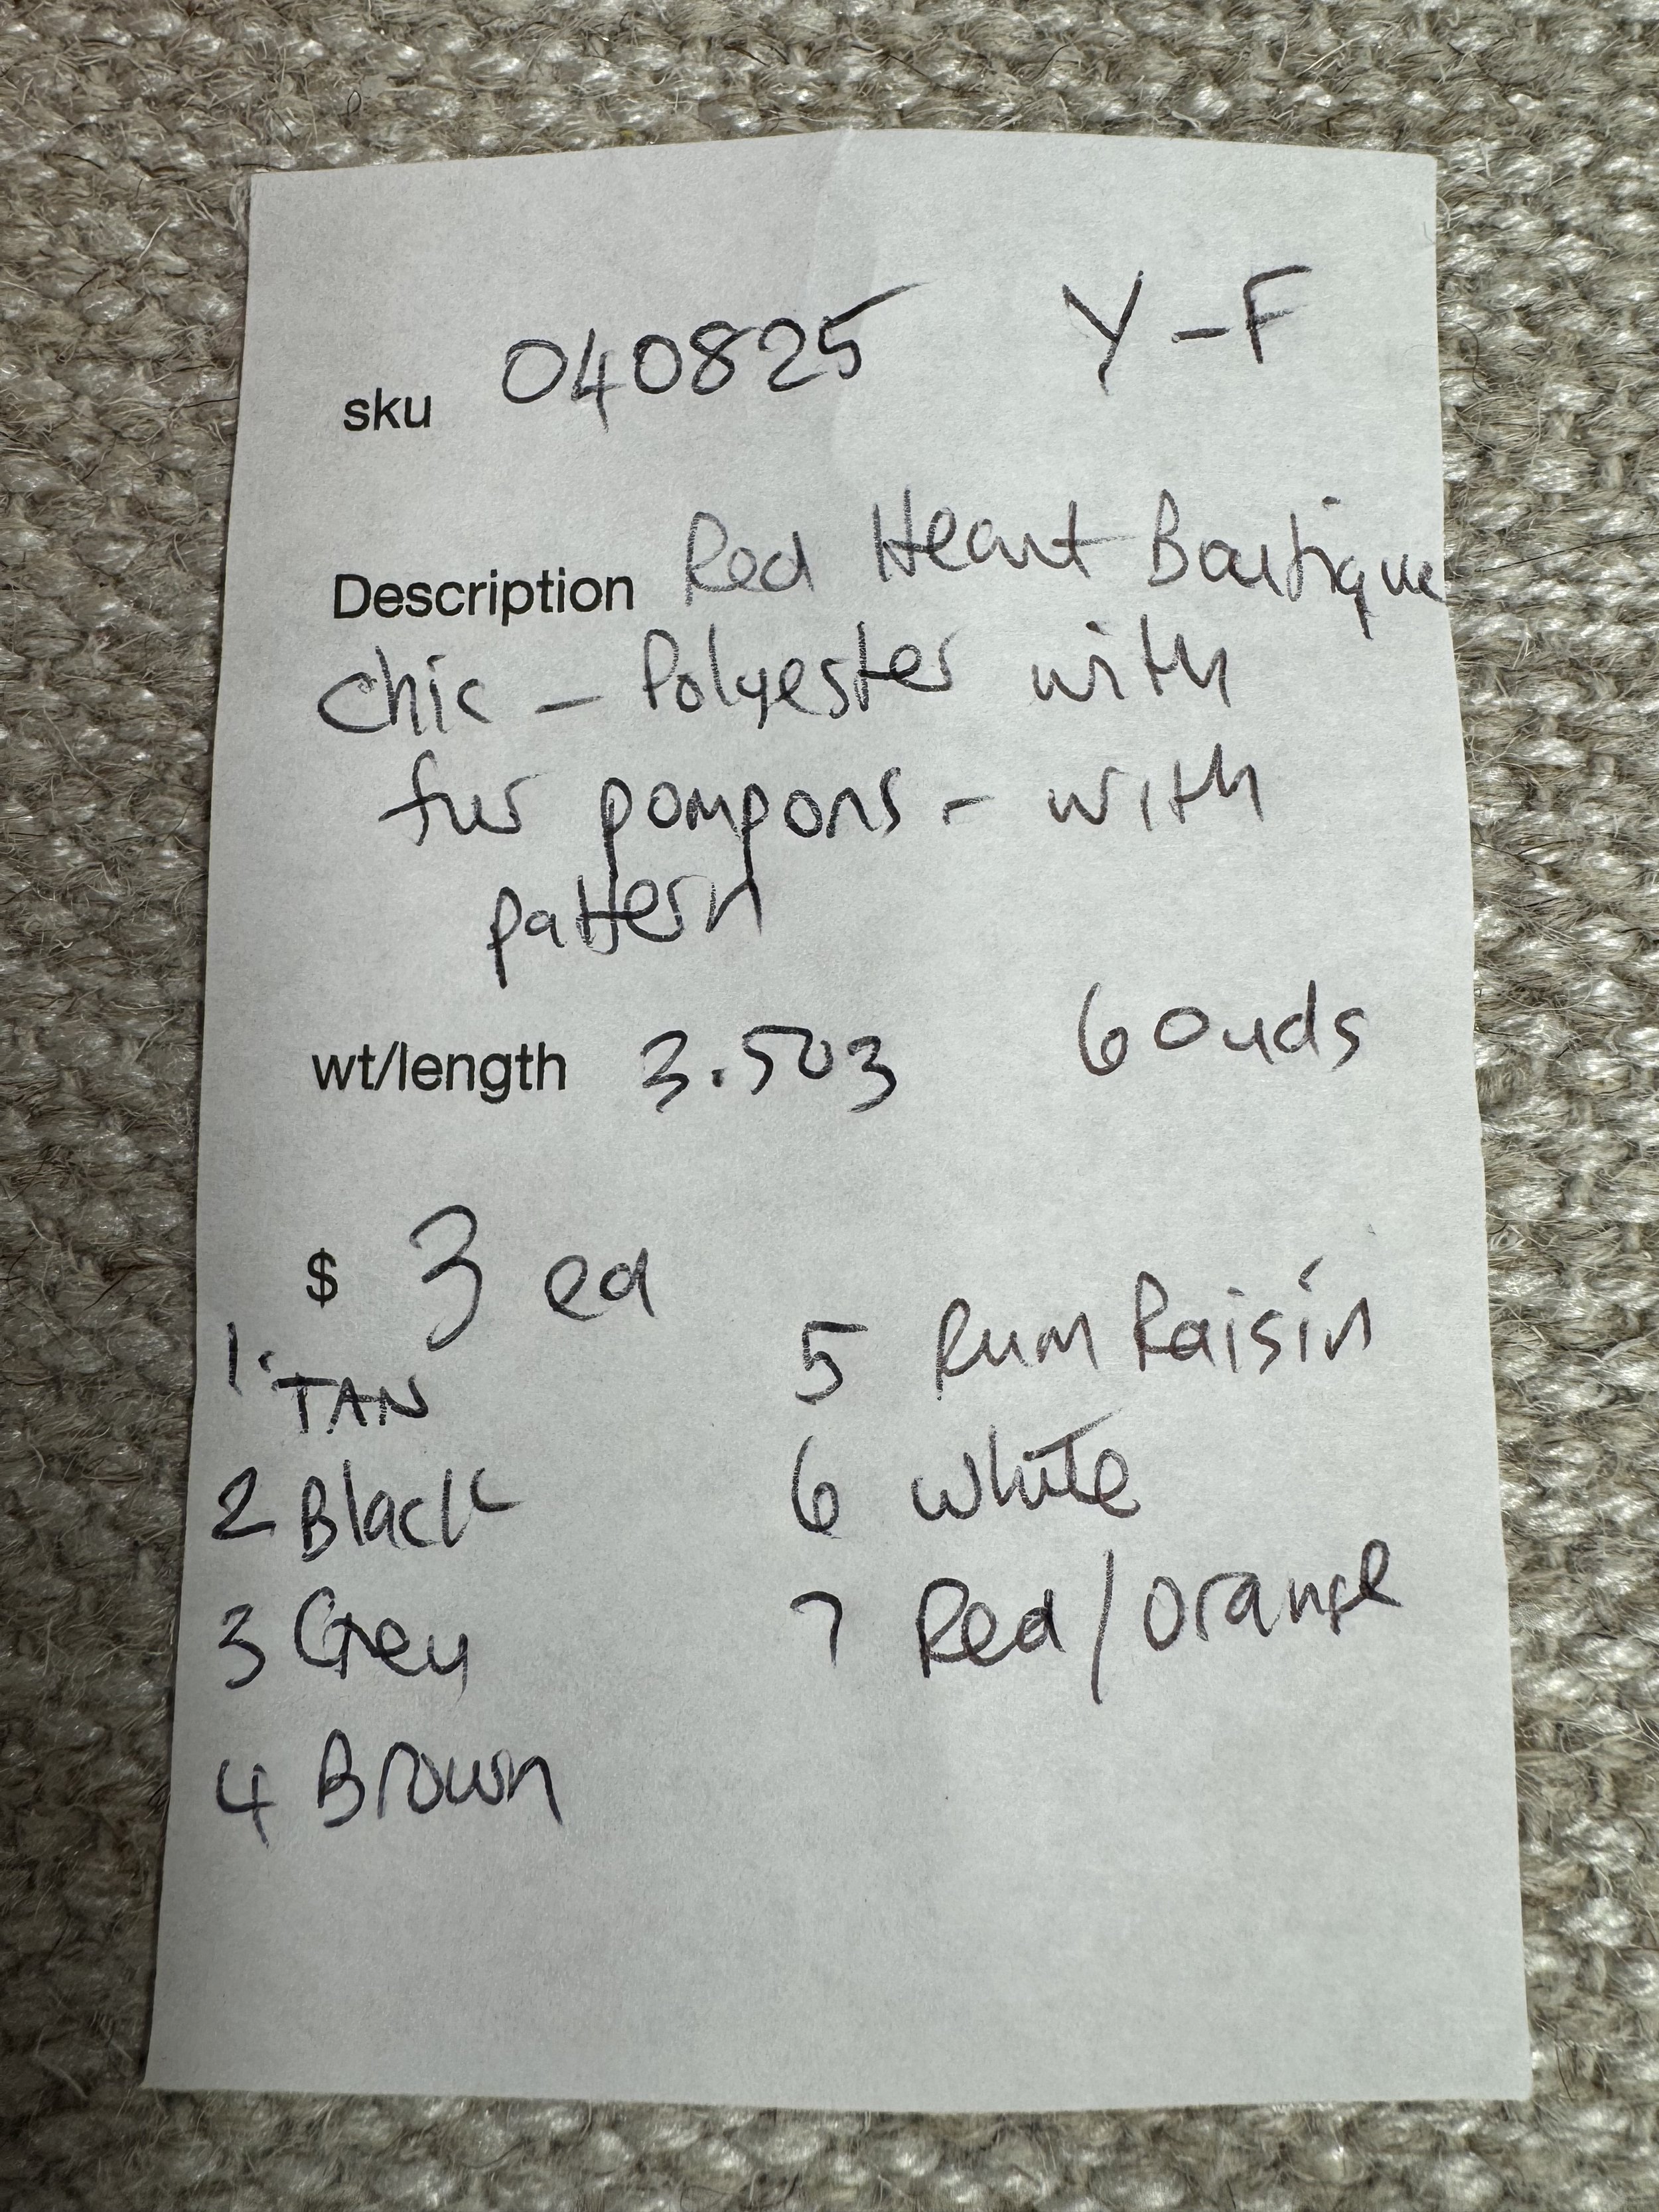 sku 040825 Y-F
Description Red Heart Boutique
chic - Polyester with
fur pompons - with
pattern
wt/length 3.5oz 60yds
$ 3 ea
1. TAN
2 Black
3 Grey
4 Brown
5 Rum Raisin
6 white
7 Red/orange